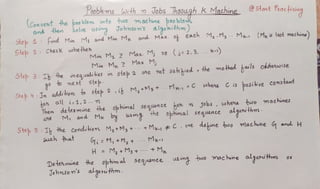 Problems with n Jobs Through K Machine @ Start Practising
(Convert the problem into two machine problem
and then solve using Johnson's algorithm)
Step 1 : Find Min M₁ and Min Mk and Max of each M₂, M₃ .. Mk-1 (Mk is last machine)
Step 2 : Check whether
Min M₁ ≥ Max Mj for (j = 2, 3, .. k-1)
Min Mk ≥ Max Mj
Step 3 : If the inequalities in step 2 are not satisfied, the method fails otherwise
go to next step
Step 4 : In addition to step 2, if M₂ + M₃ + .. Mk-1 = C where C is positive constant
for all i = 1, 2 .. n
Then determine the optimal sequence for n jobs, where two machines
are M₁ and Mk by using the optimal sequence algorithm
Step 5 : If the condition M₂ + M₃ + .. + Mk-1 ≠ C, we define two machine G and H
such that
G = M₁ + M₂ + .. Mk-1
H = M₂ + M₃ + .. + Mk
Determine the optimal sequence using two machine algorithm or
Johnson's algorithm.